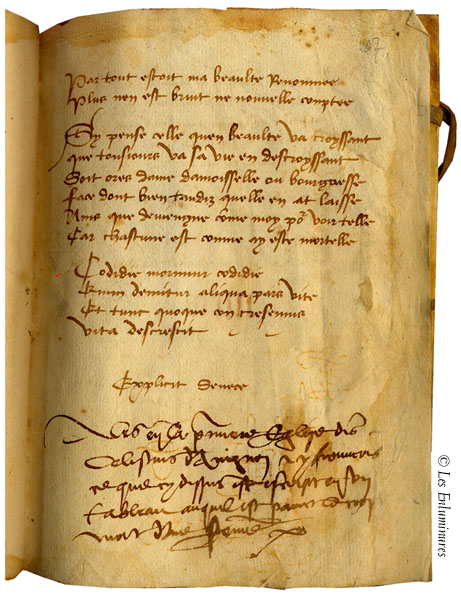 Par tout estoit ma beaulte Renommee
Plus nen est bruit ne nouvelle comptee
Sy pense celle quen beaulte va croyssant
que tousiours va sa vie en descroyssant
Soit ores dame damoisselle ou bourgoesse
face dont bien tandiz quelle en at laisse
Ains que devengne come moy po voir telle
Car chascune est comme ay este mortelle
Codidie morimur codidie
Enim demitur aliqua pars vite
Et tunc quoque con cresimus
vita descrescit
Explicit Senece
en la premiere Eglise des
Celestins dAvignon
ce que cy dessus est escript en son
tableau auquel est painct
mort
© Les Enluminures